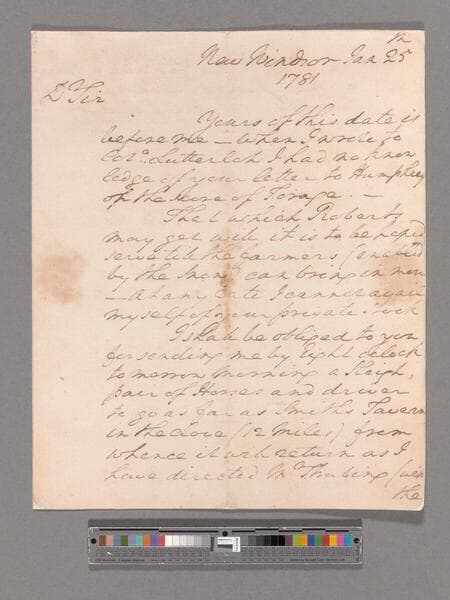 New Windsor Jan 25th
1781
Dr Sir
Yours of this date is
before me — when I wrote to
Colo. Lutterloh I had no know
ledge of your letter to Humphrey
on the score of Forage. —
That which Roberts
may get will, it is to be hoped
serve till the Farmers (enabled
by the Snow) can bring in more
— at any rate I cannot avail
myself of your private stock
I shall be obliged to you
for sending me by Eight Oclock
tomorrow morning a Sleigh,
pair of Horses and driver
to go as far as Smiths Tavern
in the Clove (12 Miles) from
whence it will return as I
have directed Mr Thebing (with
the